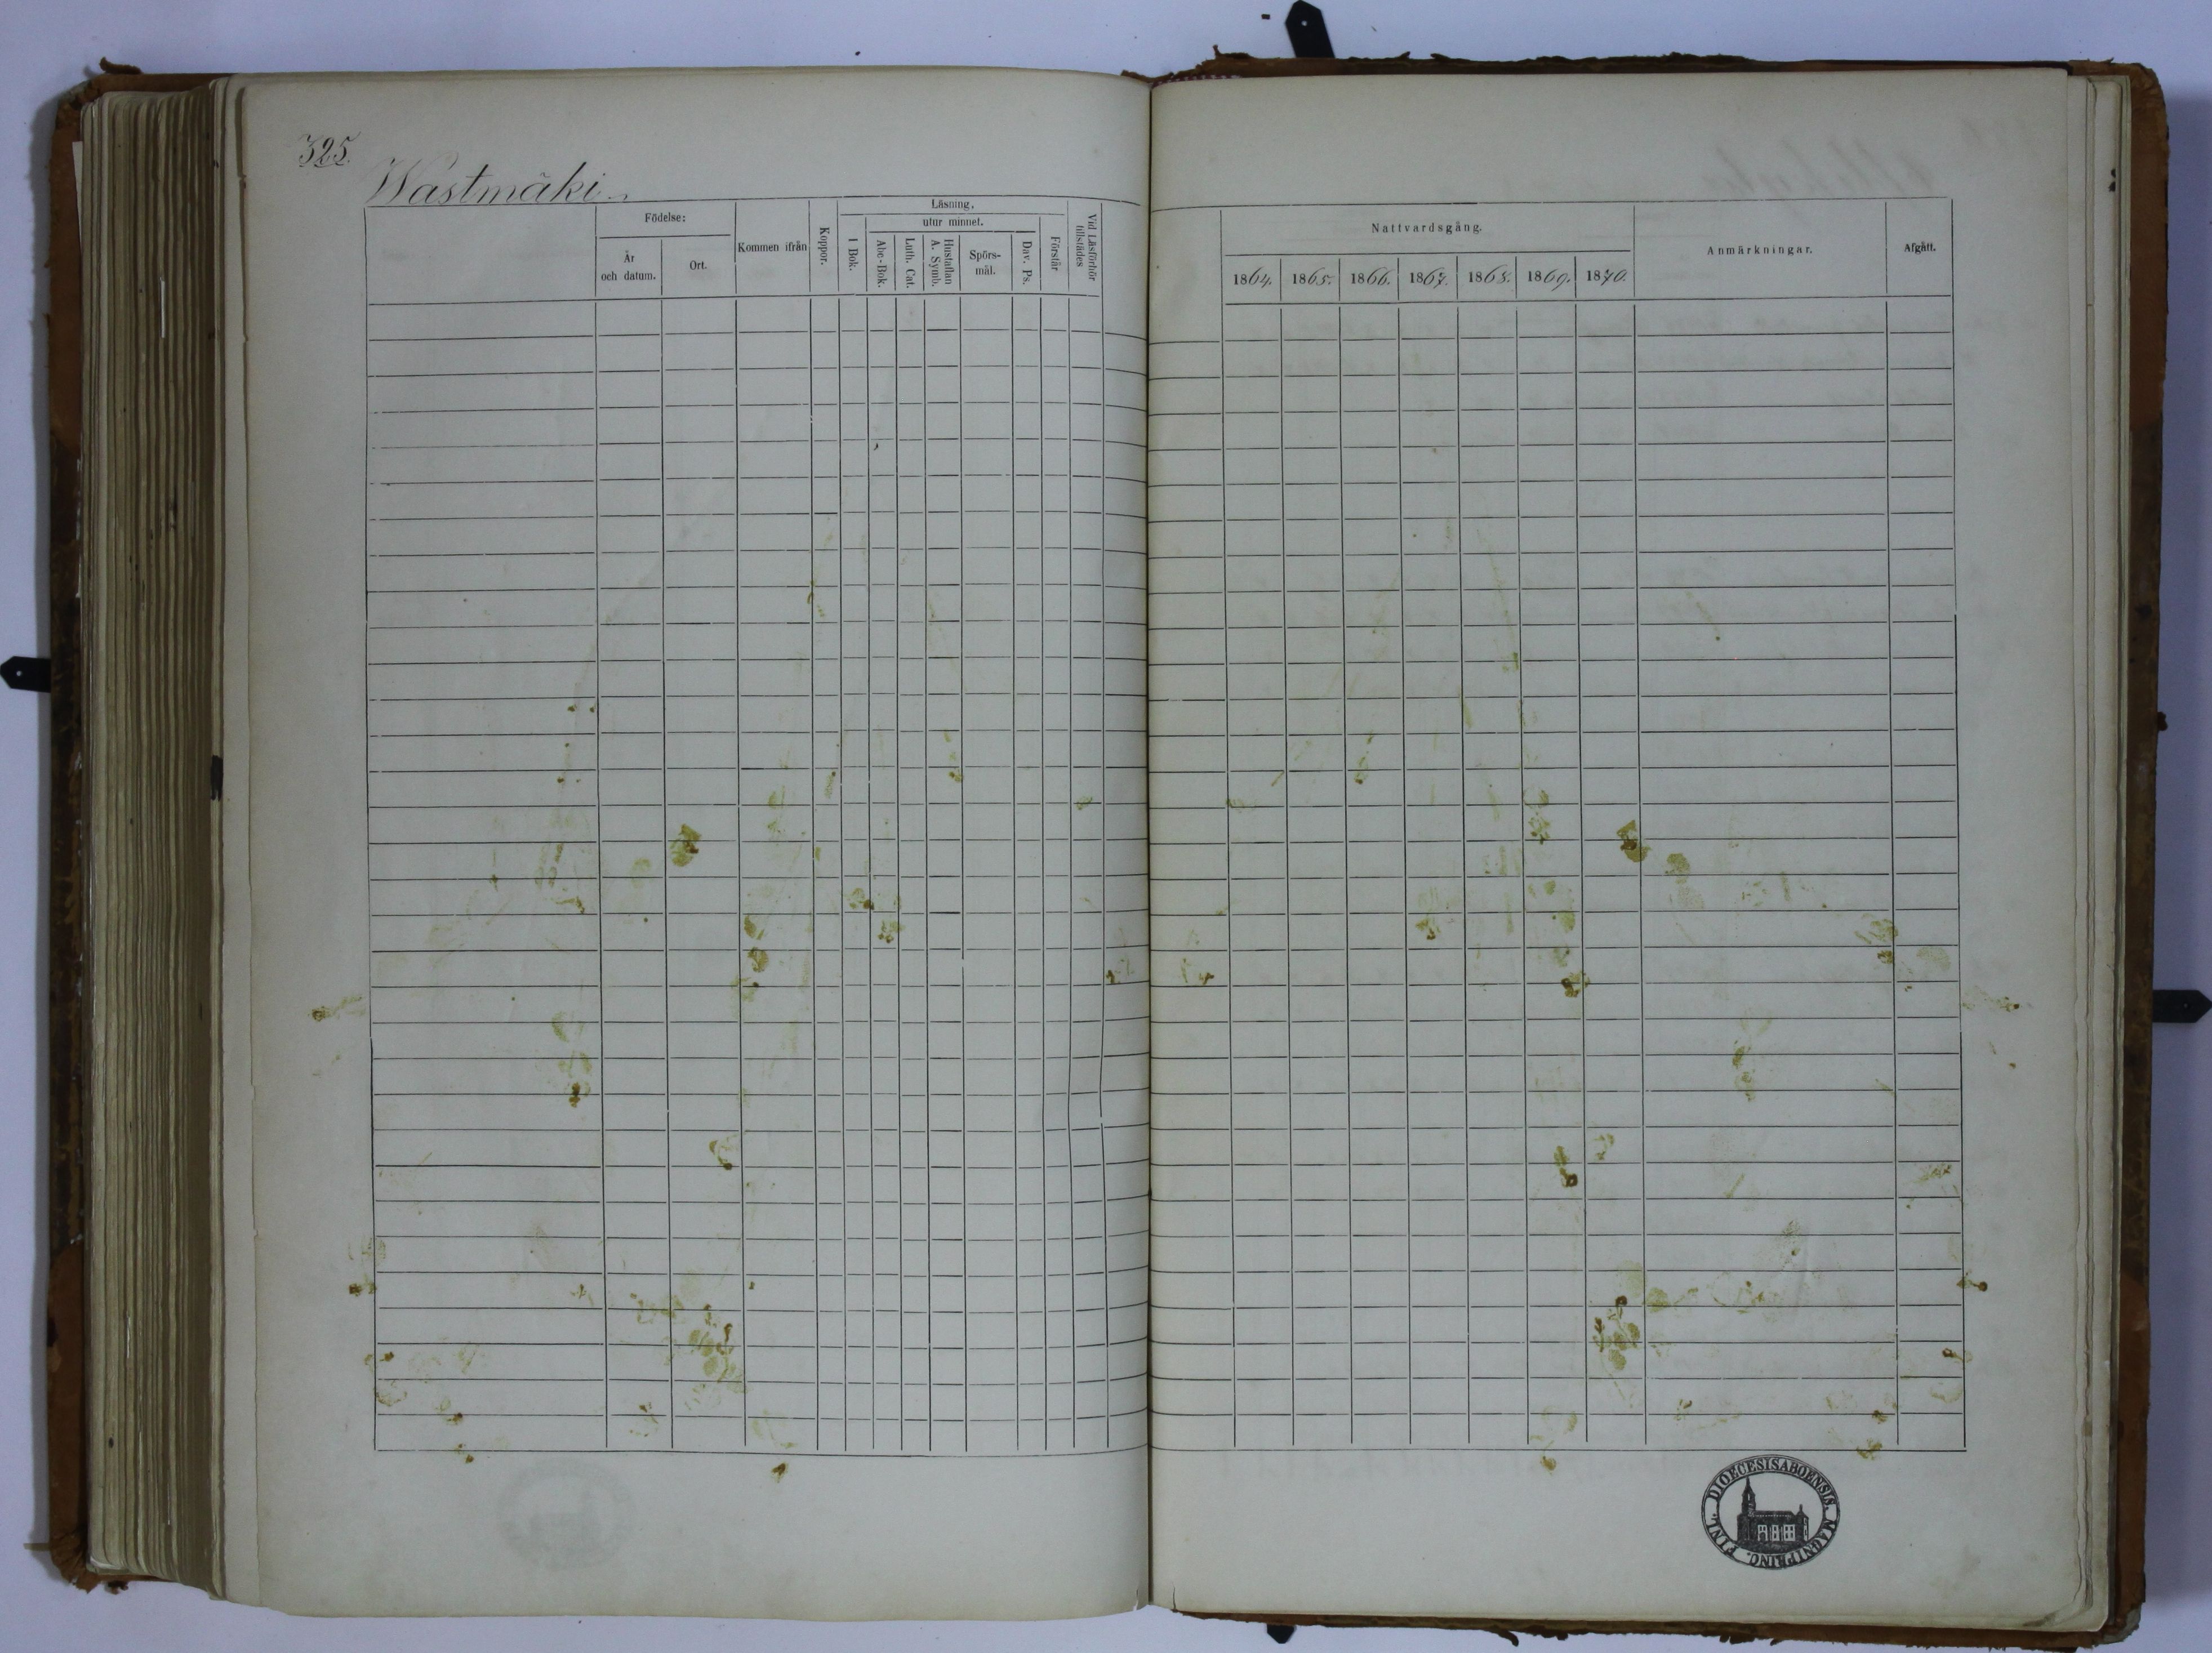 325.
Wästmäki
Födelse:
År
och datum.
Ort.
Kommen ifrån
Koppor.
Läsning,
I Bok.
utur minnet.
Abc-Bok.
Luth. Cat.
Hustaflan
A. Symb.
Spörs-
mål.
Dav. Ps.
Förstår
Vid Läsförhör
tillstädes
Nattvardsgång.
1864.
1865.
1866.
1867.
1868.
1869.
1870.
Anmärkningar.
Afgått.
DIOECESISABOENSIS. MAGNIPRINC. FINL.